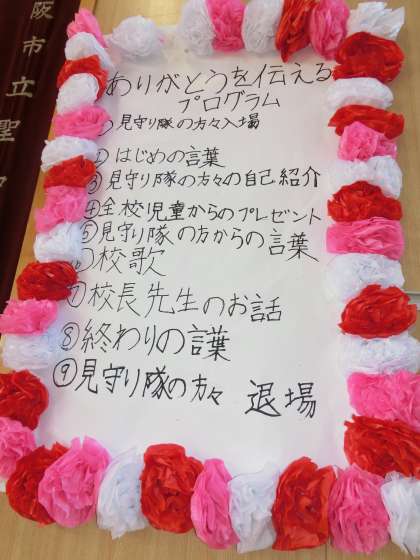 阪市立聖
ありがとうを伝える
プログラム
① 見守り隊の方々入場
② はじめの言葉
③ 見守り隊の方々の自己紹介
④ 全校児童からのプレゼント
⑤ 見守り隊の方からの言葉
⑥ 校歌
⑦ 校長先生のお話
⑧ 終わりの言葉
⑨ 見守り隊の方々 退場